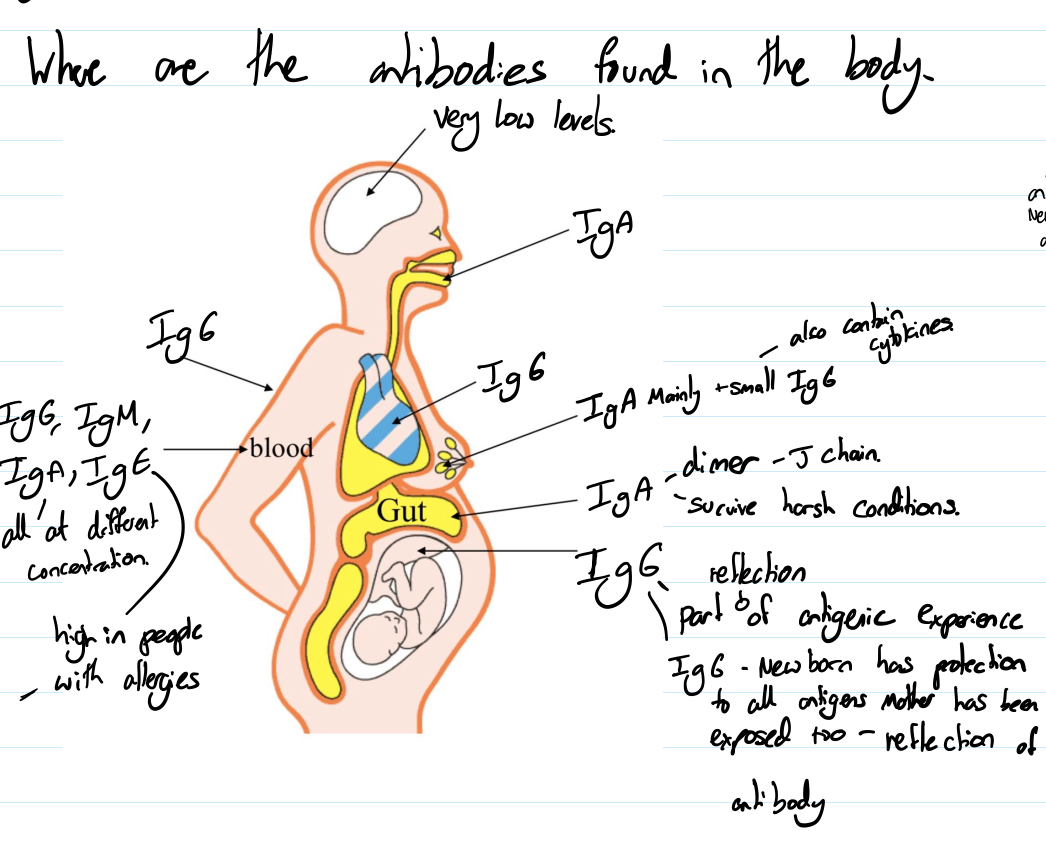 Where are the antibodies found in the body.
very low levels.
IgA
IgG
IgG
also contain
cytokines.
IgA Mainly + small IgG
IgG, IgM,
IgA, IgE
blood
all at different
concentration.
high in people
with allergies
IgA - dimer - J chain.
- survive harsh conditions.
Gut
IgG reflection
part of antigenic experience
IgG - Newborn has protection
to all antigens mother has been
exposed too - reflection of
antibody